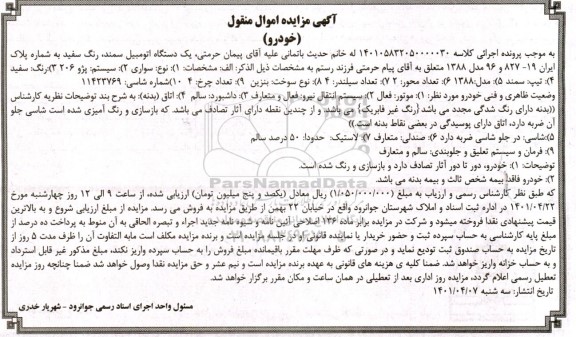 آگهی مزایده اموال منقول
(خودرو)
به موجب پرونده اجرائی کلاسه ۱۴۰۱۰۵۸۳۲۰۵۰۰۰۰۰۳۰ له خانم حدیث باتمانی علیه آقای پیمان حرمتی، یک دستگاه اتومبیل سمند، رنگ سفید به شماره پلاک
ایران ۱۹- ۸۲۷ و ۹۶ مدل ۱۳۸۸ متعلق به آقای پیام حرمتی فرزند رستم به مشخصات ذیل الذکر: الف: مشخصات ۱): نوع: سواری ۲): سیستم: پژو ۲۰۶ ۳):رنگ: سفید
۴): تیپ: سمند ۵): مدل:۱۳۸۸ ۶): تعداد محور: ۲ ۷): تعداد سیلندر: ۴ ۸): نوع سوخت: بنزین ۹): تعداد چرخ: ۴ ۱۰):شماره شاسی: ۱۱۴۲۳۷۶۹
وضعیت ظاهری و فنی خودرو مورد نظر: ۱): موتور: فعال ۲): سیستم انتقال نیرو: فعال و متعارف ۳): داشبورد: سالم ۴): اتاق (بدنه): به شرح بند توضیحات نظریه کارشناس
((بدنه دارای رنگ شدگی مجدد می باشد (رنگ غیر فابریک) می باشد و از چندین نقطه دارای آثار تصادف می باشد. که بازسازی و رنگ آمیزی شده است شاسی جلو
آن ضربه دارد، اتاق دارای پوسیدگی در بعضی نقاط بدنه است))
۵):شاسی: در جلو شاسی ضربه دارد ۶): صندلی: متعارف ۷): لاستیک: حدودا: ۵۰ درصد سالم
۹): فرمان و سیستم تعلیق و جلوبندی: سالم و متعارف
توضیحات: ۱): خودرو، دور تا دور آثار تصادف دارد و بازسازی و رنگ شده است.
۲): خودرو فاقد بیمه شخص ثالث و بیمه بدنه می باشد.
که طبق نظر کارشناس رسمی و ارزیاب به مبلغ (۱/۰۵۰/۰۰۰/۰۰۰) ریال معادل (یکصد و پنج میلیون تومان) ارزیابی شده، از ساعت ۹ الی ۱۲ روز چهارشنبه مورخ
۱۴۰۱/۰۴/۲۲ در اداره ثبت اسناد و املاک شهرستان جوانرود واقع در خیابان ۲۲ بهمن از طریق مزایده به فروش می رسد. مزایده از مبلغ ارزیابی شروع و به بالاترین
قیمت پیشنهادی نقدا فروخته میشود و شرکت در مزایده برابر ماده ۱۳۶ اصلاحی آئین نامه و شیوه نامه جدید اجراء و تبصره الحاقی به آن منوط به پرداخت ده درصد از
مبلغ پایه کارشناسی به حساب سپرده ثبت و حضور خریدار یا نماینده قانونی او در جلسه مزایده است و برنده مزایده مکلف است مابه التفاوت آن را ظرف مدت ۵ روز از
تاریخ مزایده به حساب صندوق ثبت تودیع نماید و در صورتی که ظرف مهلت مقرر باقیمانده مبلغ فروش را به حساب سپرده واریز نکند، مبلغ مذکور غیر قابل استرداد
و به حساب خزانه واریز خواهد شد. ضمنا کلیه ی هزینه های قانونی به عهده برنده مزایده است و نیم عشر و حق مزایده نقدا وصول خواهد شد. ضمنا چنانچه روز مزایده
تعطیل رسمی اعلام گردد، مزایده روز اداری بعد از تعطیلی در همان ساعت و مکان مقرر برگزار خواهد شد.
تاریخ انتشار: سه شنبه ۱۴۰۱/۰۴/۰۷
مسئول واحد اجرای اسناد رسمی جوانرود - شهریار خدری